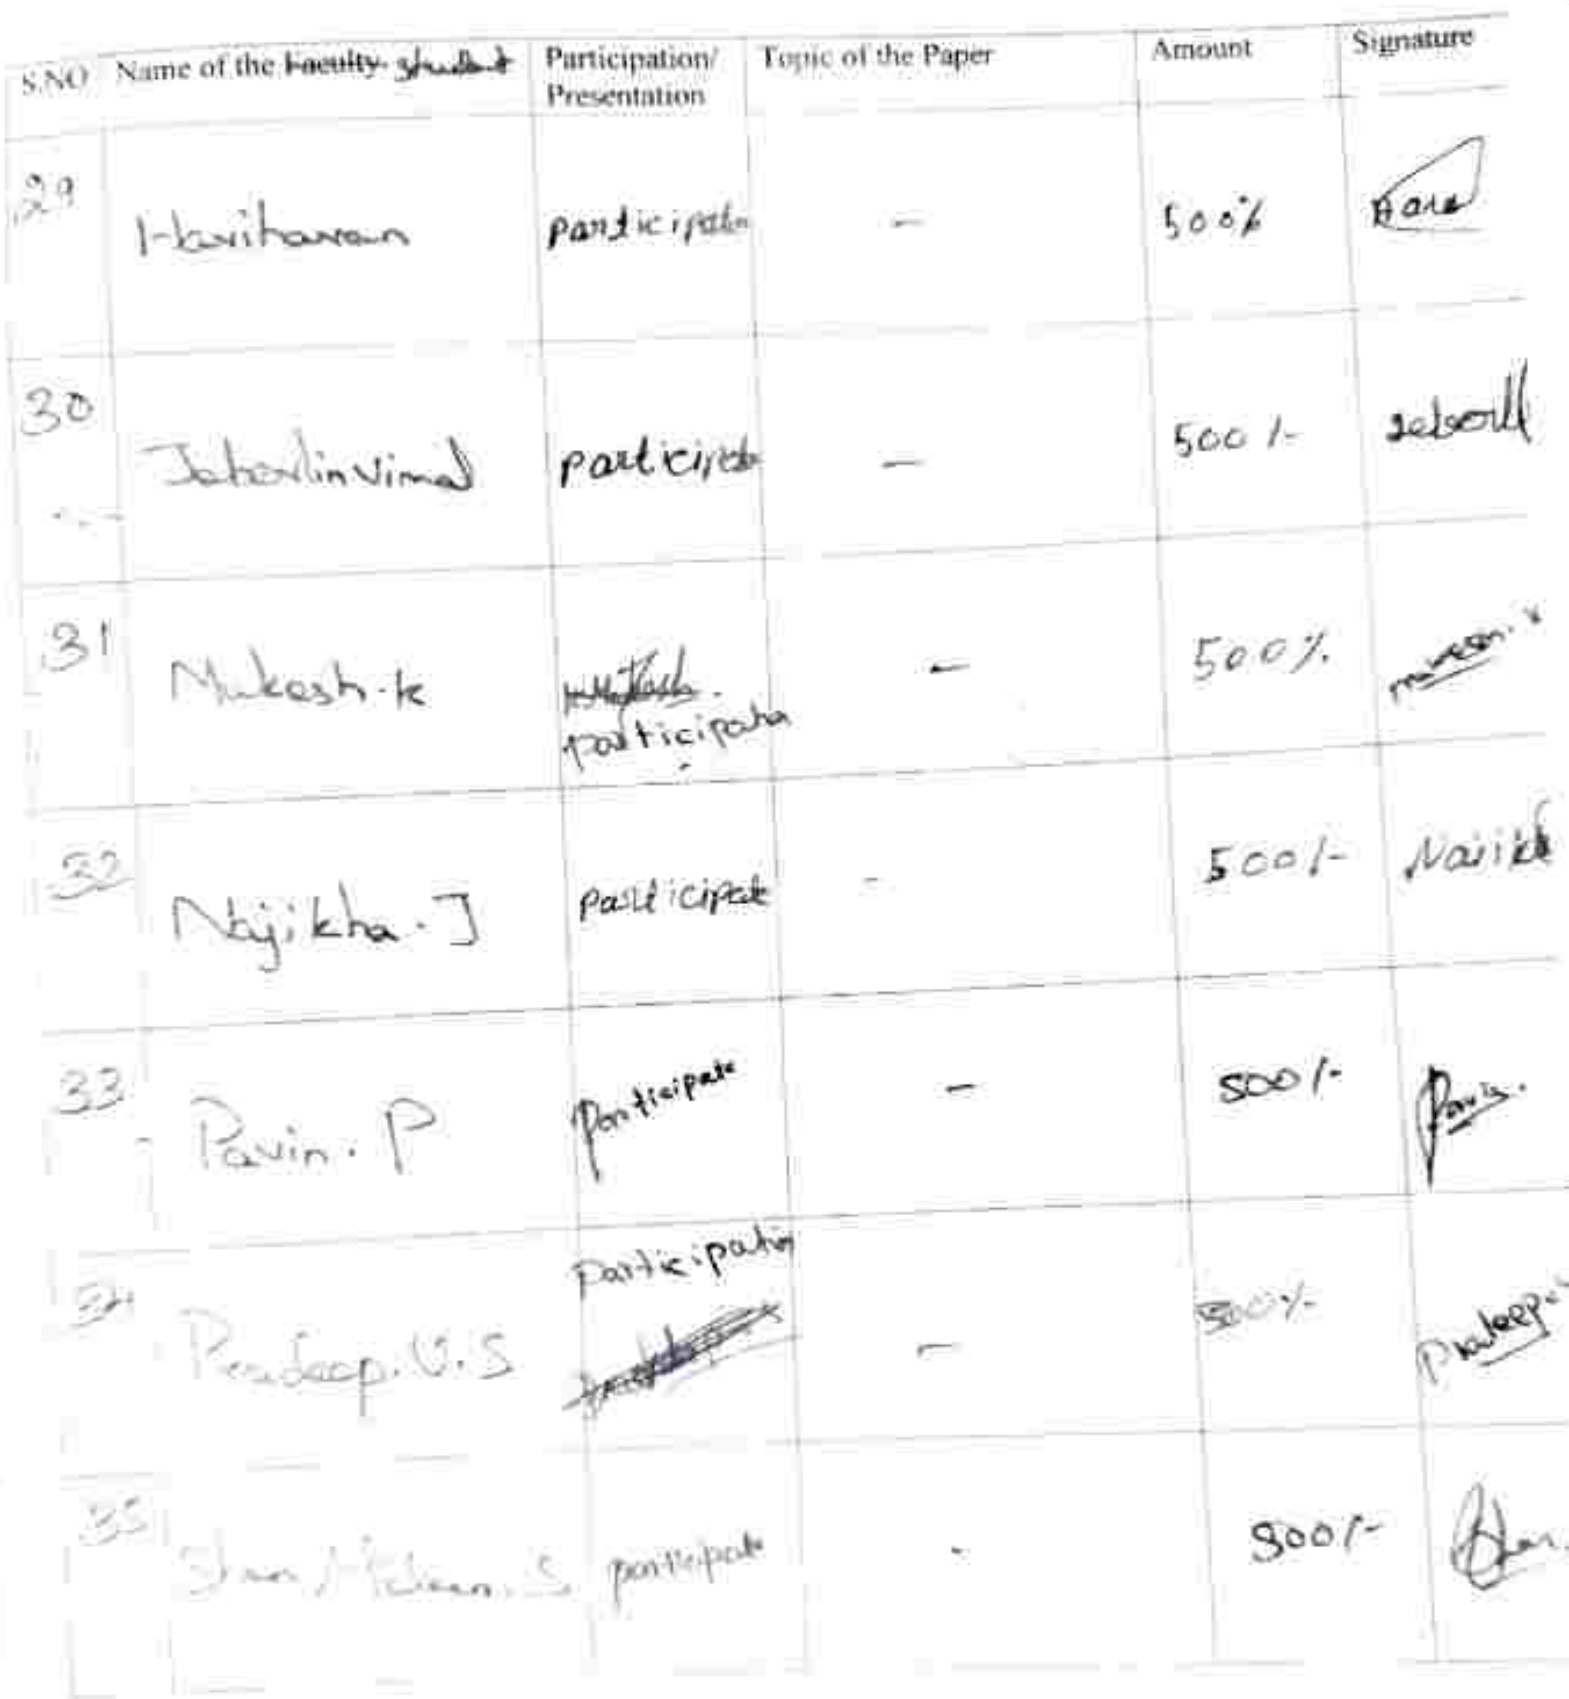 S.NO Name of the Faculty student Participation/ Presentation Topic of the Paper Amount Signature
29 Hariharan participatin - 500/- Hara
30 Jeberlin Vimal participate - 500/-
31 Mukesh.k participatin - 500/-
32 Najikha.J participate - 500/- Najikh
33 Pavin.P Participate - 500/- Pavin.
34 Pradeep.V.S Participatin - 500/- Pradeep.
35 participate - 500/-